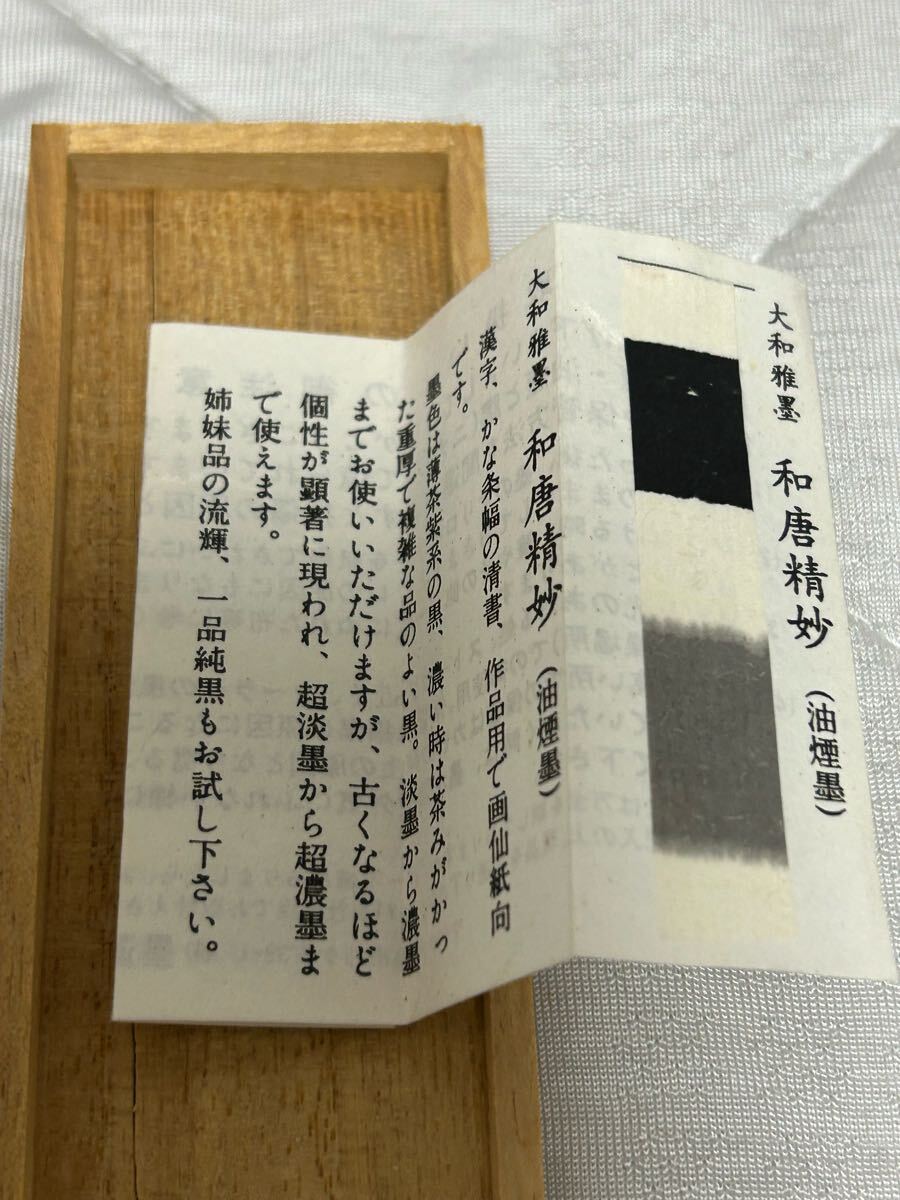 大和雅墨　和唐精妙　(油煙墨)
大和雅墨　和唐精妙　(油煙墨)
漢字、かな条幅の清書、作品用で画仙紙向
です。
墨色は薄茶紫系の黒、濃い時は茶みがかっ
た重厚で複雑な品のよい黒。淡墨から濃墨
までお使いいただけますが、古くなるほど
個性が顕著に現われ、超淡墨から超濃墨ま
で使えます。
姉妹品の流輝、一品純黒もお試し下さい。